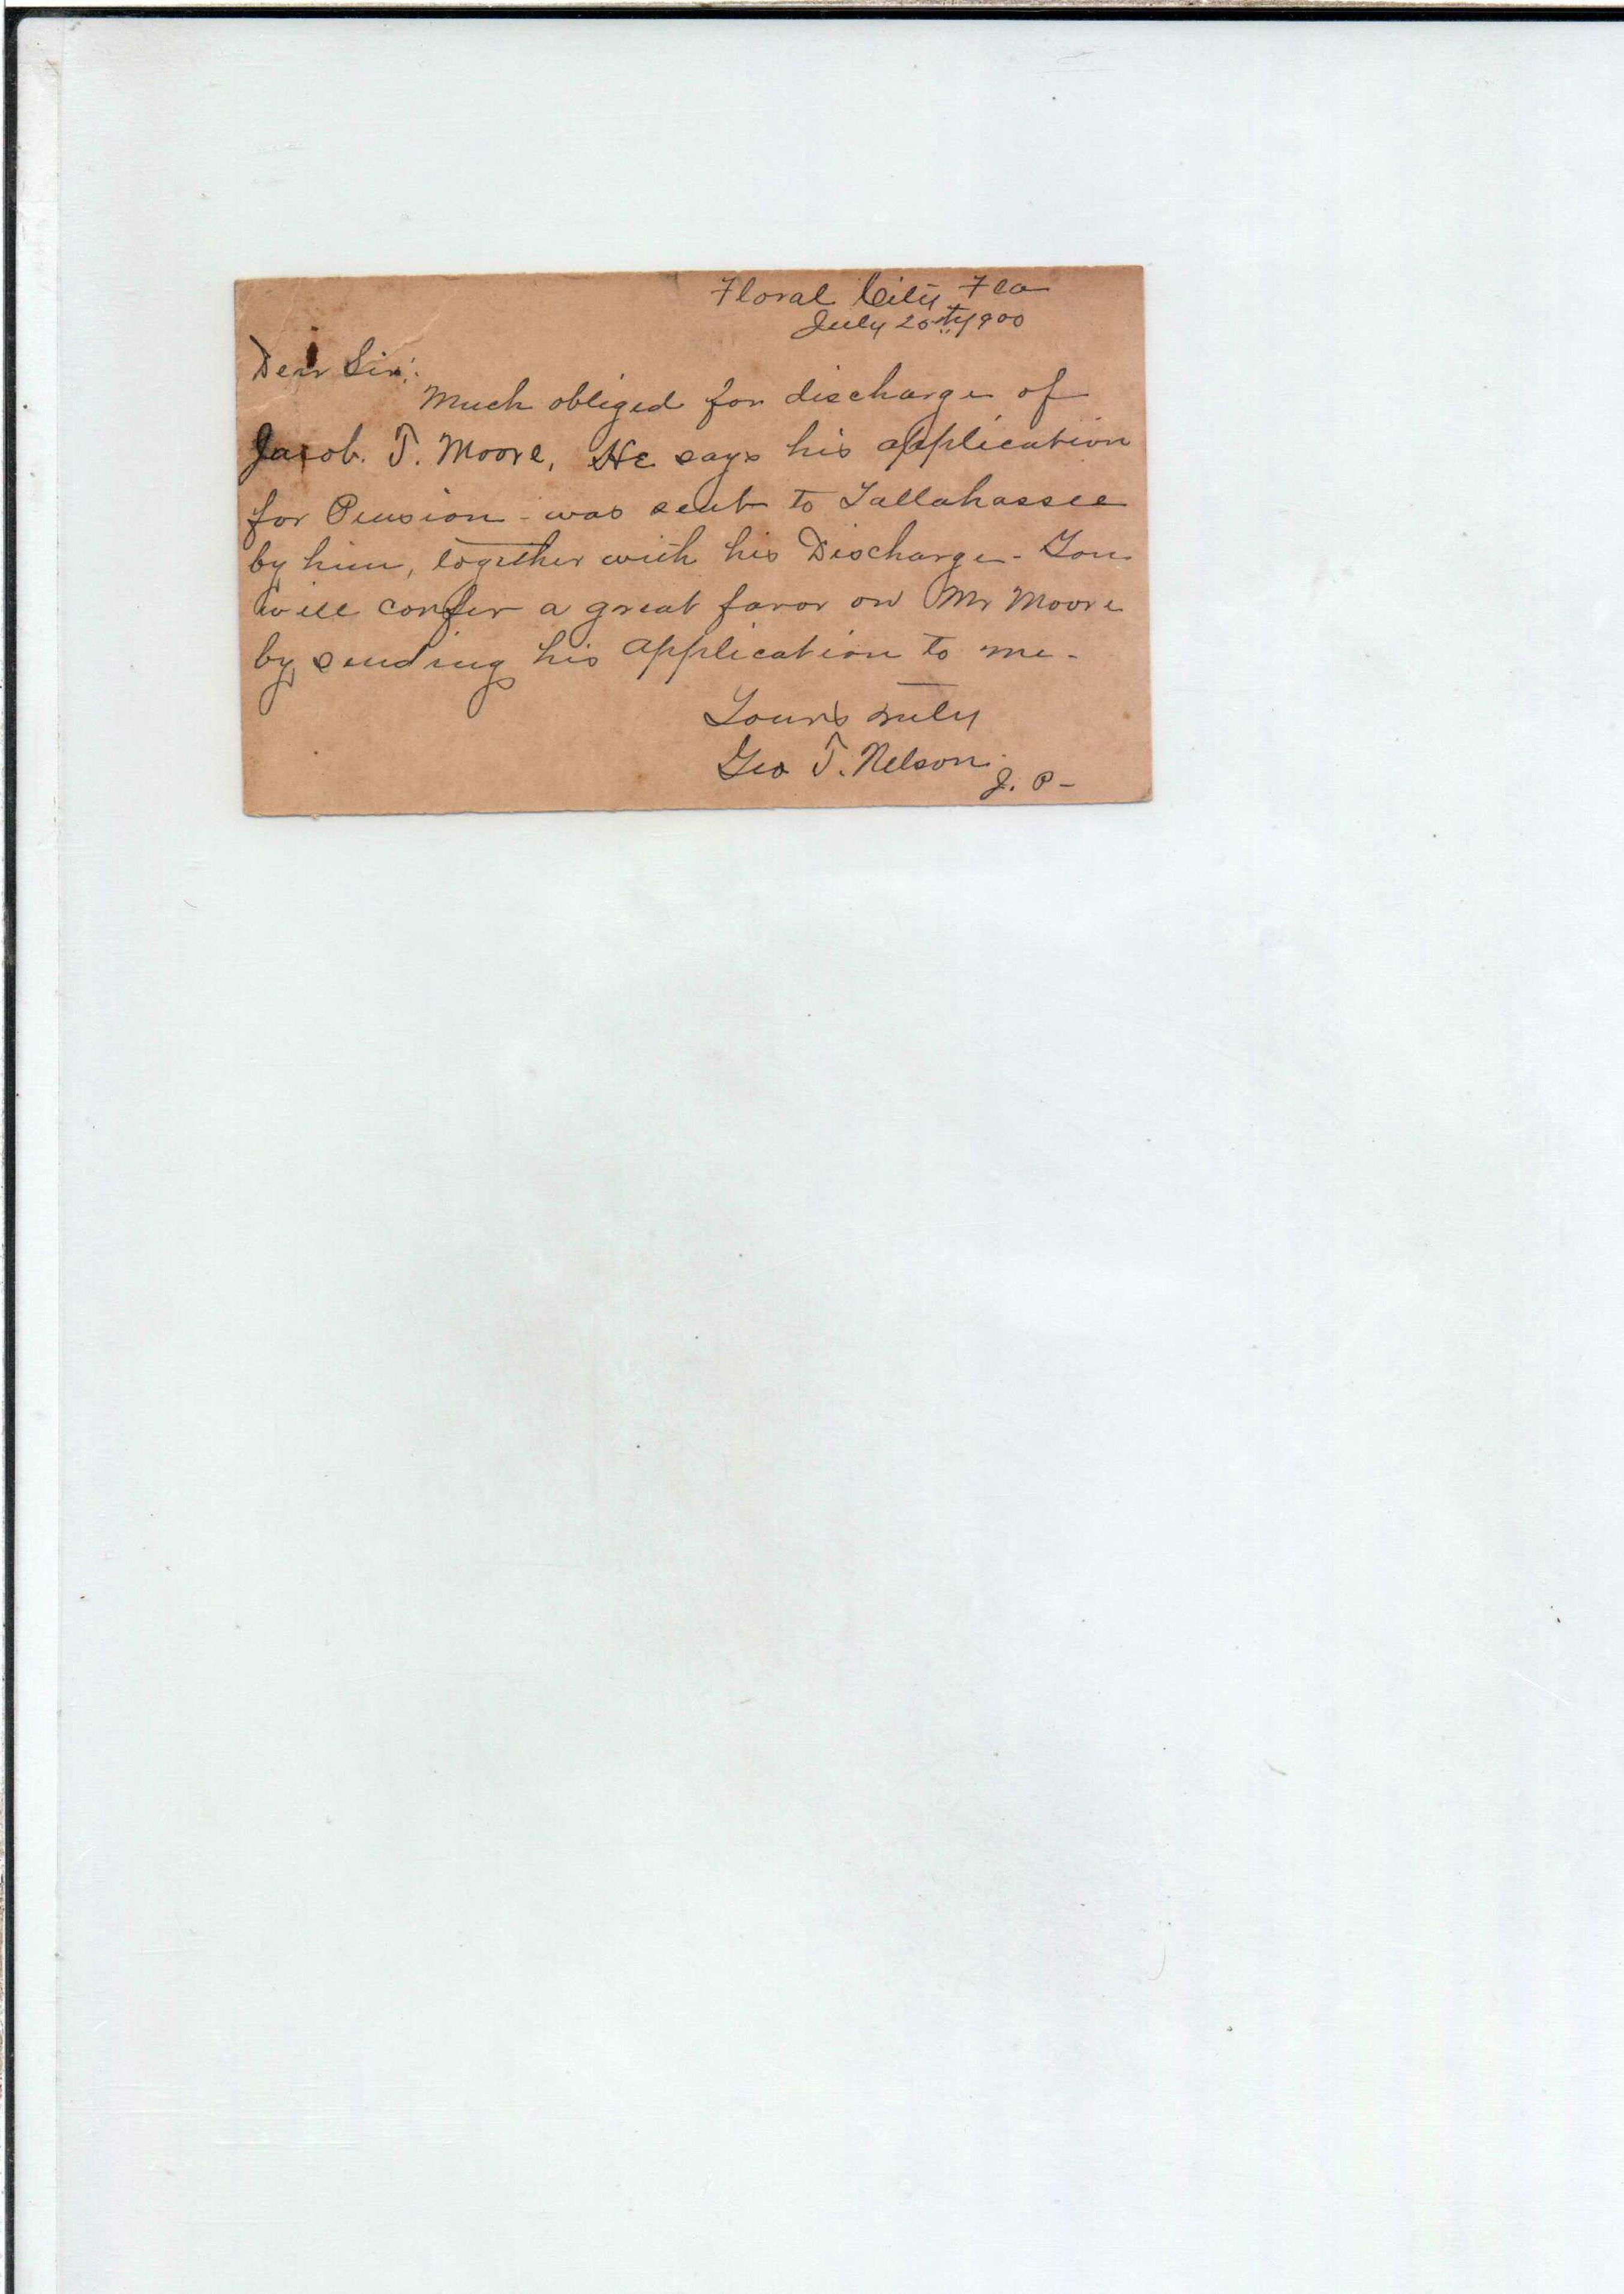 Floral City Fla
July 20th 1900
Dear Sir:
Much obliged for discharge of
Jacob. T. Moore, He says his application
for Pension - was sent to Tallahassee
by him, together with his Discharge - You
will confer a great favor on Mr Moore
by sending his application to me -
Yours truly
Geo T. Nelson.
J. P -